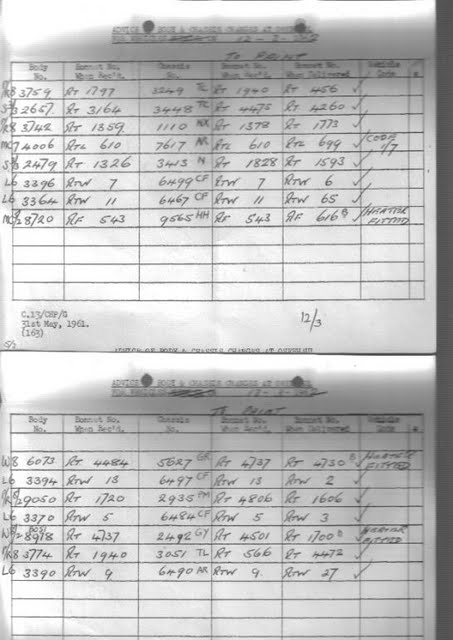 ADVICE OF BODY & CHASSIS CHANGES AT
12 - 2 -
TO PAINT
Body No. Bonnet No. When Rec'd. Chassis No. Bonnet No. When Delivered Vehicle Code
3759 RT 1797 3249 TL RT 1940 RT 456 ✓
2657 RT 3164 3448 TL RT 4475 RT 4260 ✓
3742 RT 1359 1110 NX RT 1378 RT 1773 ✓
4006 RTL 610 7617 NR RTL 610 RTL 699 ✓ CODE 1/7
2479 RT 1326 3413 N RT 1828 RT 1593 ✓
L6 3396 RTW 7 6499 CF RTW 7 RTW 6 ✓
L6 3364 RTW 11 6467 CF RTW 11 RTW 65 ✓
8720 RF 543 9565 HH RF 543 RF 616 B ✓ HEATER FITTED
C.13/CHP/G
31st May, 1961.
(163)
12/3
ADVICE OF BODY & CHASSIS CHANGES AT
TO PAINT
Body No. Bonnet No. When Rec'd. Chassis No. Bonnet No. When Delivered Vehicle Code
W8 6073 RT 4484 5627 GR RT 4737 RT 4730 B ✓ HEATER FITTED
L6 3394 RTW 13 6497 CF RTW 13 RTW 2 ✓
9050 RT 1720 2935 PM RT 4806 RT 1606 ✓
L6 3370 RTW 5 6484 CF RTW 5 RTW 3 ✓
8978 RT 4737 2492 GY RT 4501 RT 1700 B ✓ HEATER FITTED
3774 RT 1940 3051 TL RT 566 RT 4472 ✓
L6 3390 RTW 9 6490 AR RTW 9. RTW 27 ✓